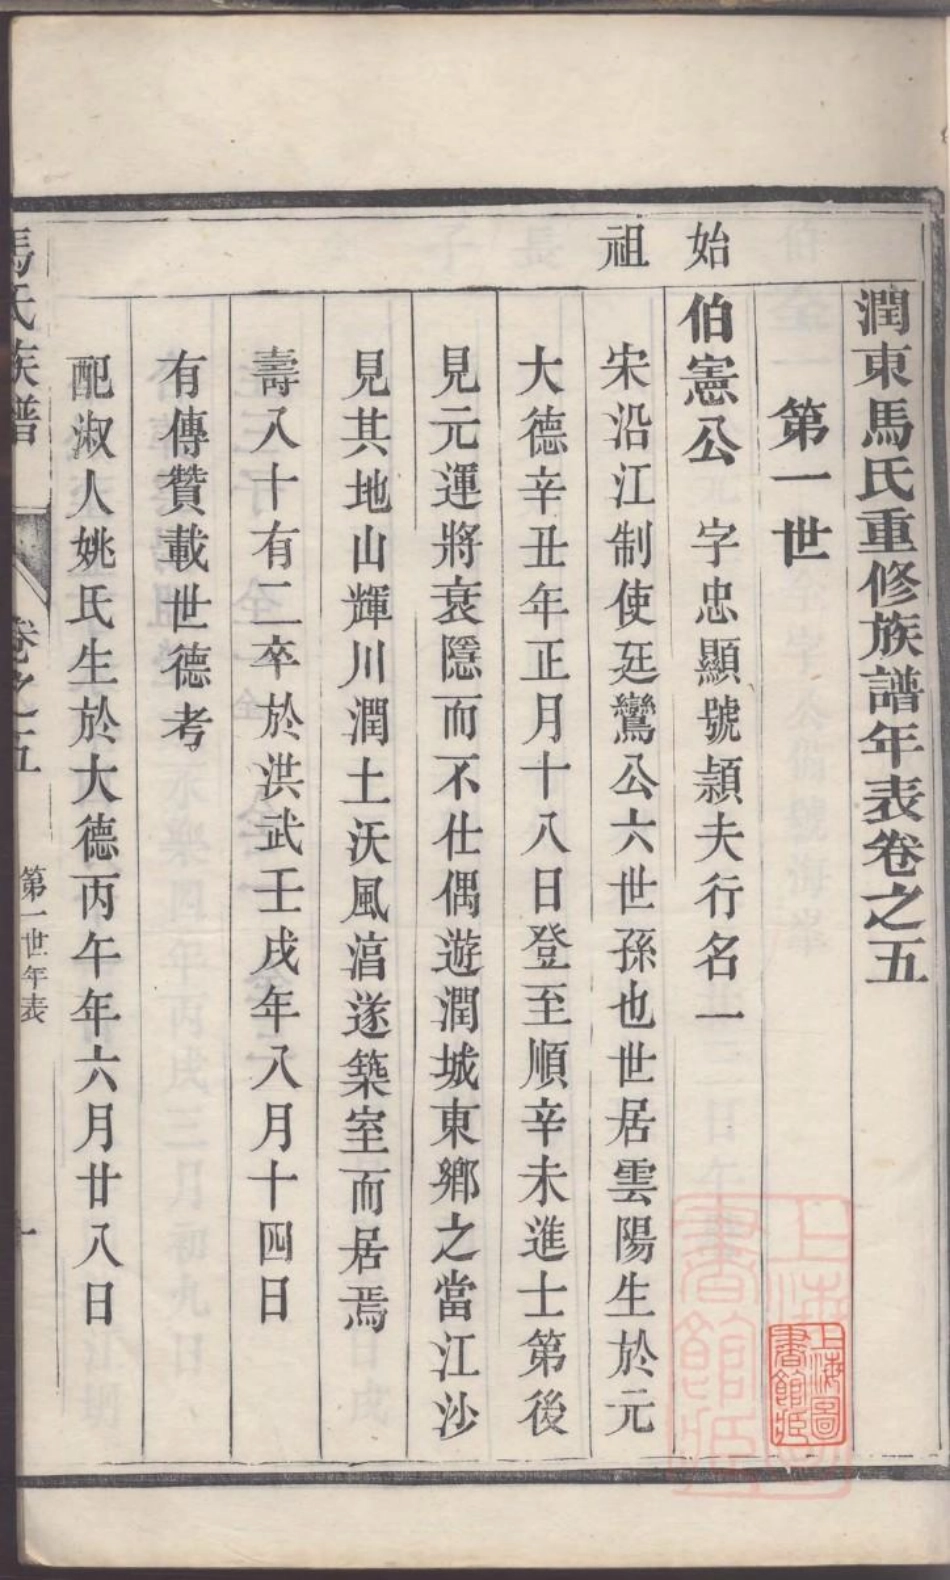 潤東馬氏重修族譜年表卷之五
第一世
始祖
伯憲公 字忠顯號潁夫行名一
宋沿江制使廷鸞公六世孫也世居雲陽生於元
大德辛丑年正月十八日登至順辛未進士第後
見元運將衰隱而不仕偶遊潤城東鄉之當江沙
見其地山輝川潤土沃風淳遂築室而居焉
壽八十有二卒於洪武壬戌年八月十四日
有傳贊載世德考
配淑人姚氏生於大德丙午年六月廿八日
馬氏族譜 卷之五 第一世年表 一
上海圖書館藏